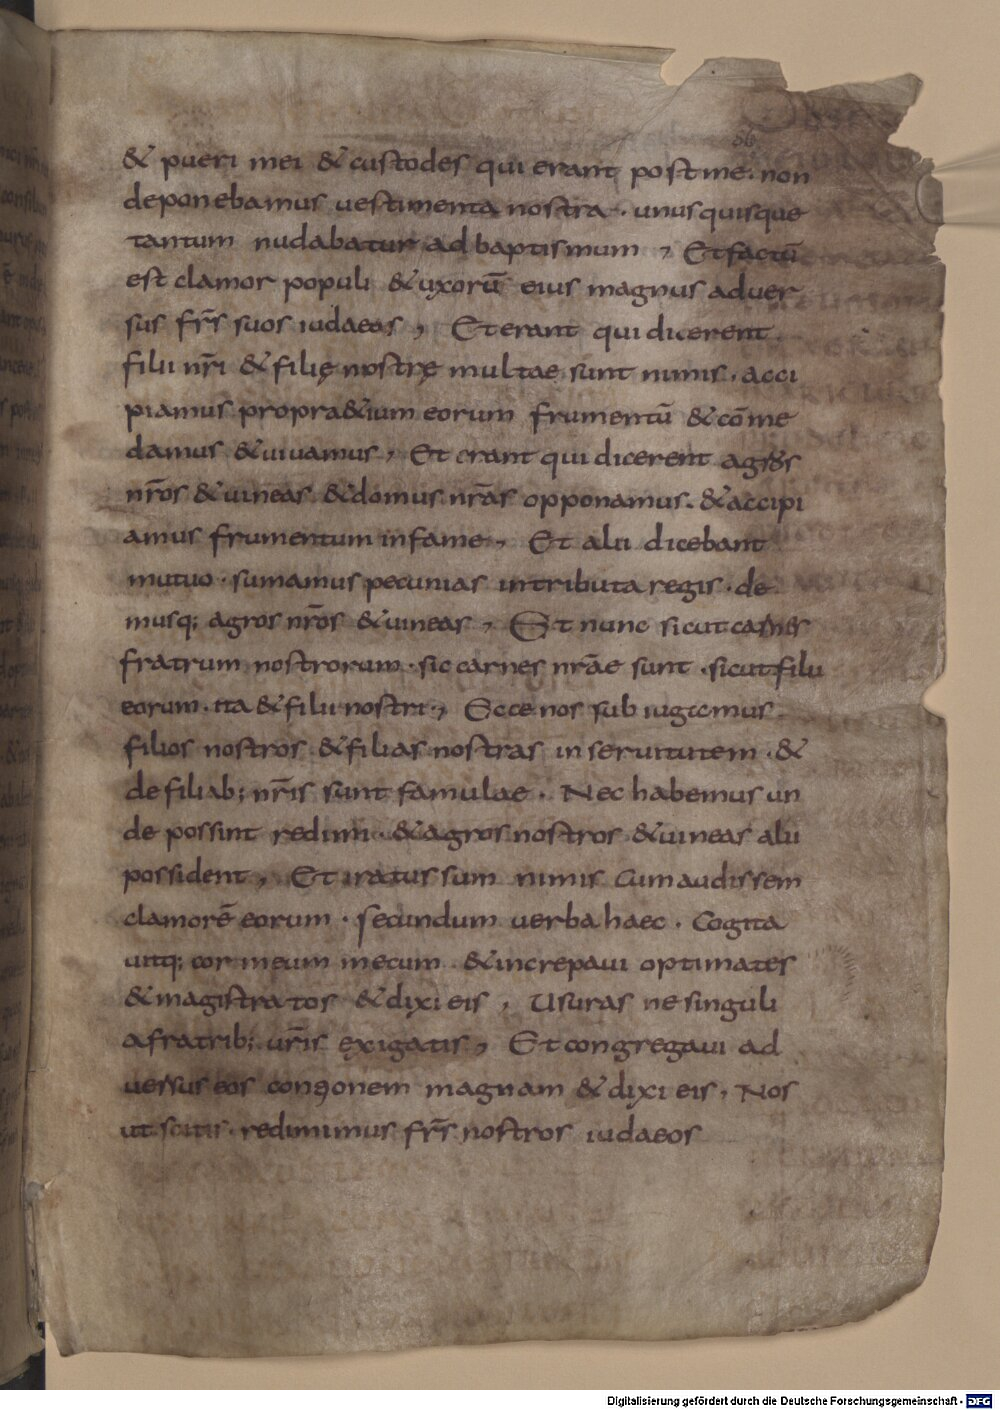 & pueri mei & custodes qui erant post me · non
deponebamus uestimenta nostra · unusquisque
tantum nudabatur ad baptismum , Et factū
est clamor populi & uxorū eius magnus aduer
sus fr̄s suos iudaeos , Et erant qui dicerent
filii nr̄i & filię nostrę multae sunt nimis · acci
piamus pro pra&ium eorum frumentū & cōme
damus & uiuamus , Et erant qui dicerent agros
nr̄os & uineas & domus nr̄as opponamus · & accipi
amus frumentum in fame , Et alii dicebant
mutuo · sumamus pecunias in tributa regis · de
musq; agros nr̄os & uineas , Et nunc sicut carnes
fratrum nostrorum · sic carnes nr̄ae sunt · sicut filii
eorum · ita & filii nostri , Ecce nos subiugamus
filios nostros & filias nostras in seruitutem · &
de filiab; nr̄is sunt famulae · Nec habemus un
de possint redimi · & agros nostros & uineas alii
possident , Et iratus sum nimis cum audissem
clamorē eorum · secundum uerba haec · Cogita
uitq; cor meum mecum & increpaui optimates
& magistratos & dixi eis , Usuras ne singuli
a fratrib; ur̄is exigatis , Et congregaui ad
uersus eos conꝯonem magnam & dixi eis , Nos
ut scitis · redimimus fr̄s nostros iudaeos
Digitalisierung gefördert durch die Deutsche Forschungsgemeinschaft - DFG